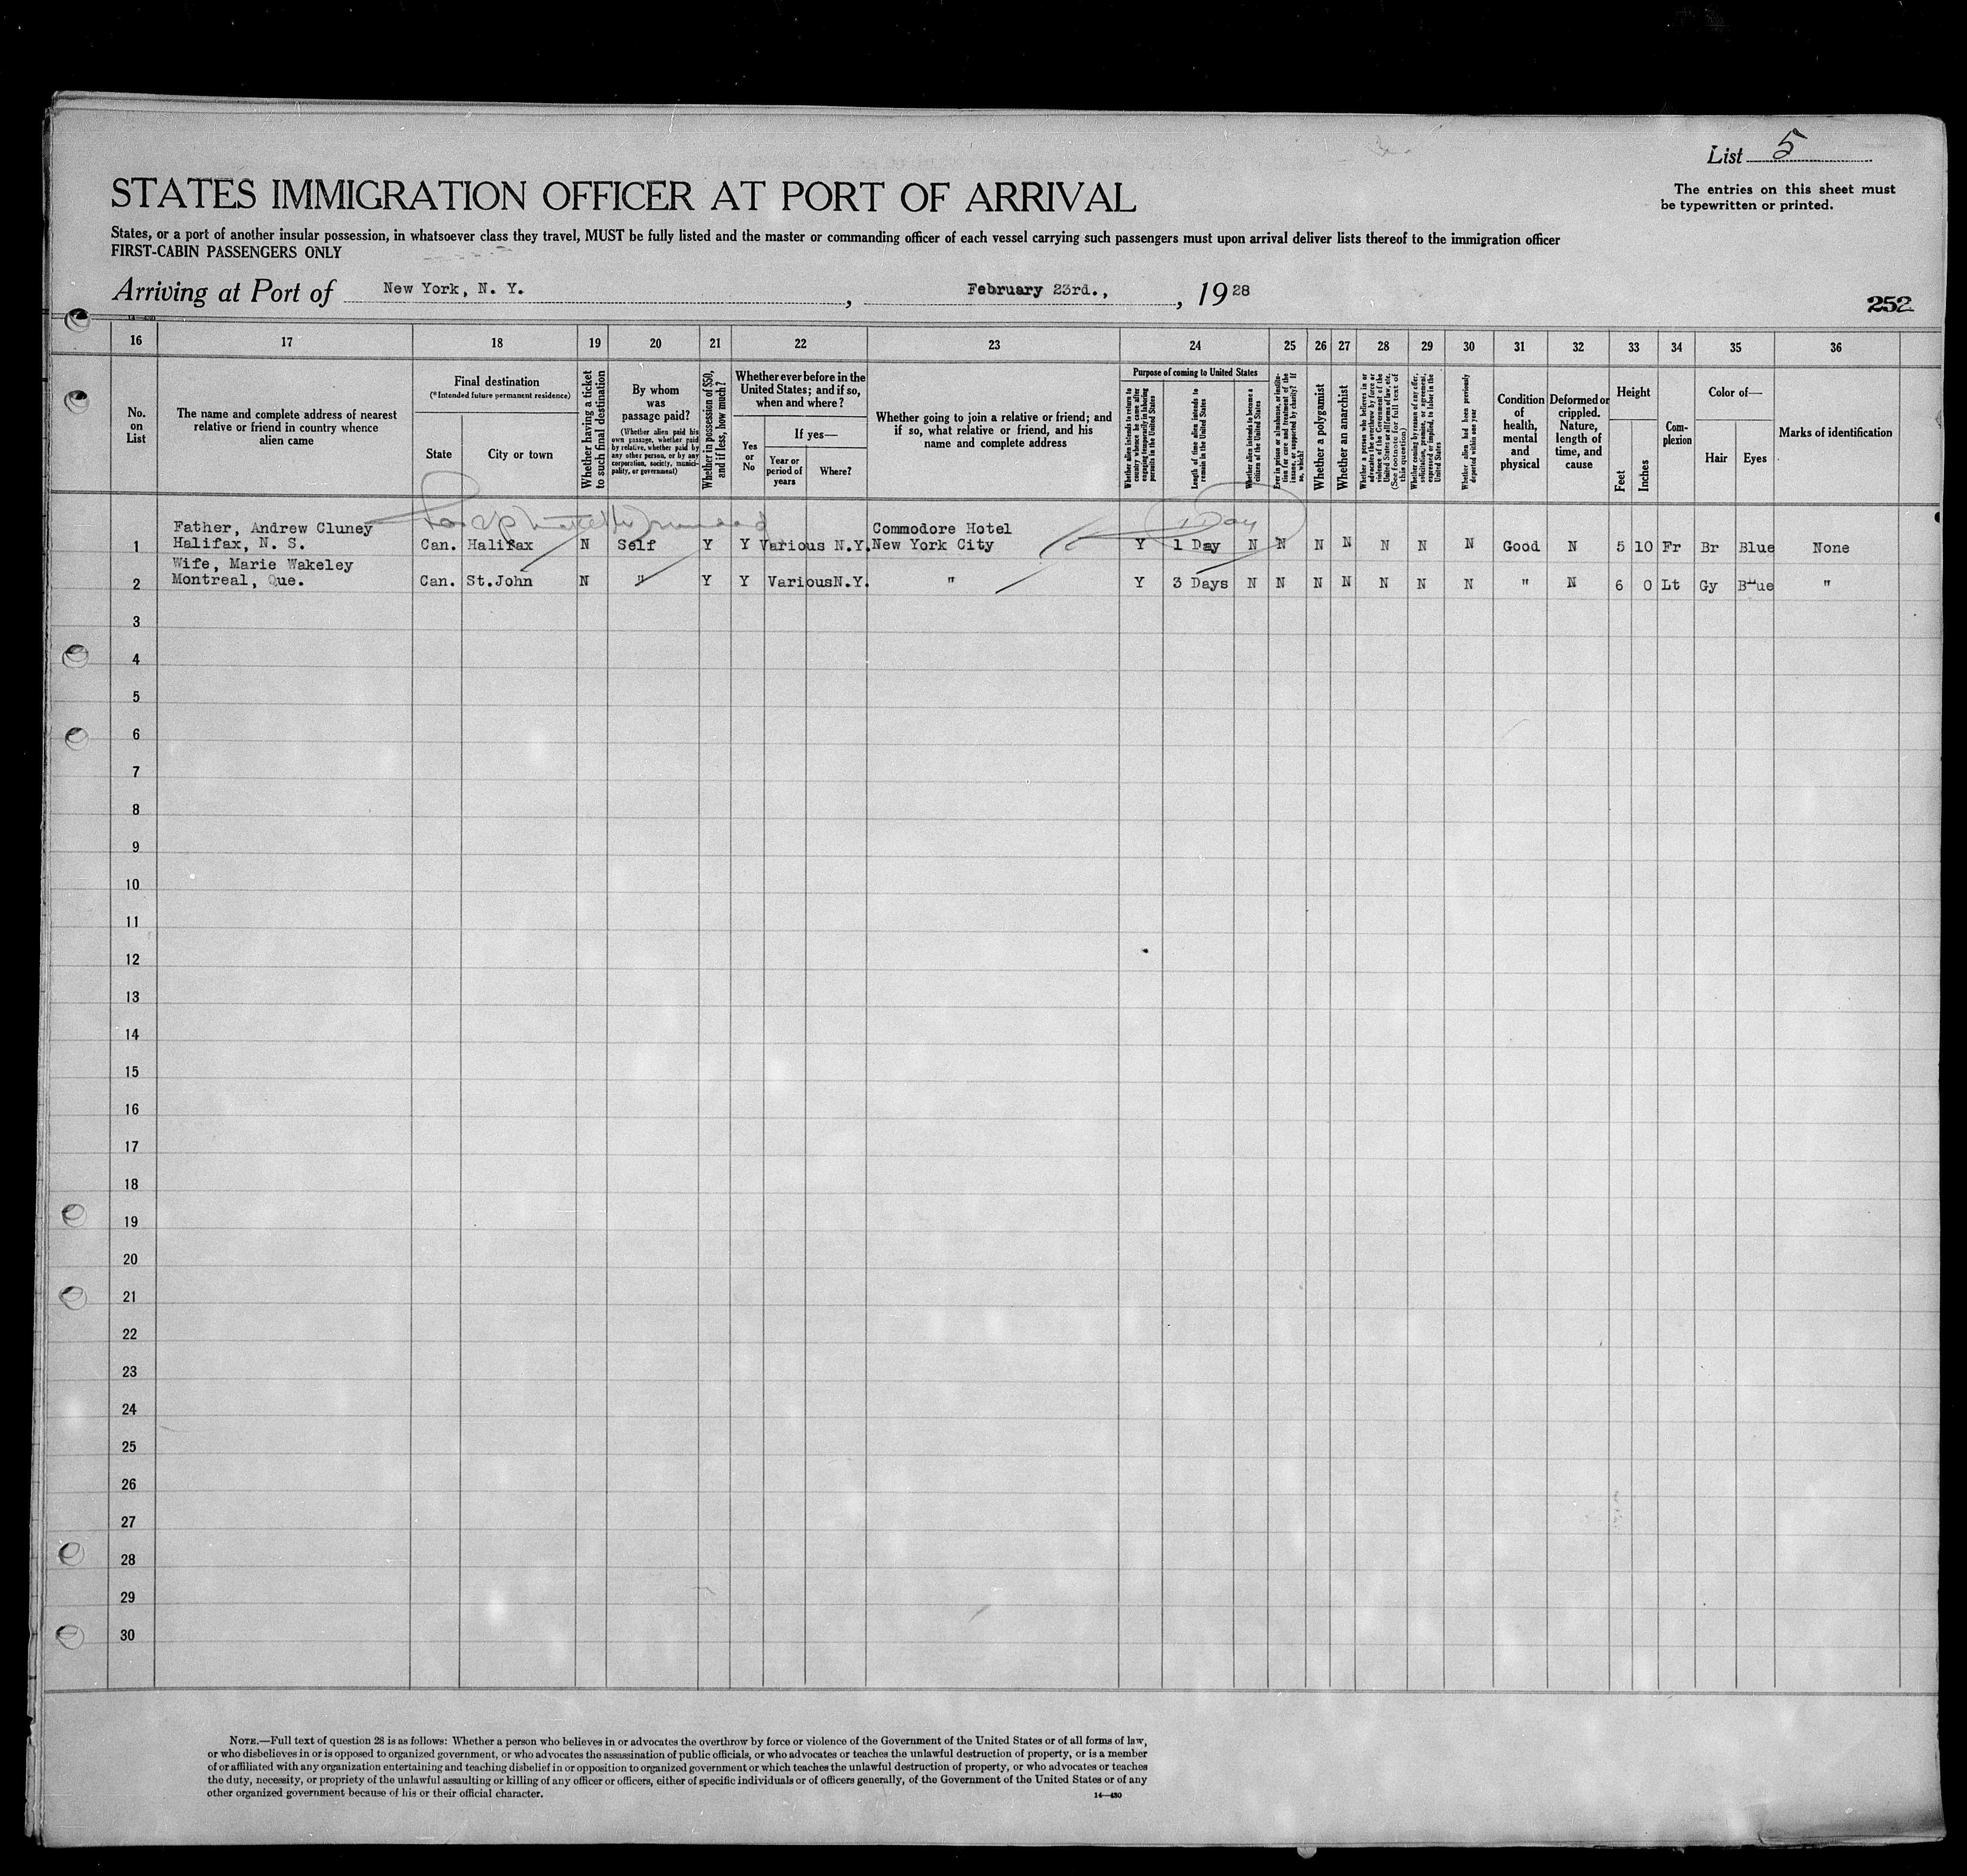 List 5
STATES IMMIGRATION OFFICER AT PORT OF ARRIVAL
The entries on this sheet must
be typewritten or printed.
States, or a port of another insular possession, in whatsoever class they travel, MUST be fully listed and the master or commanding officer of each vessel carrying such passengers must upon arrival deliver lists thereof to the immigration officer
FIRST-CABIN PASSENGERS ONLY
Arriving at Port of New York, N. Y. , February 23rd., , 1928
252
16 17 18 19 20 21 22 23 24 25 26 27 28 29 30 31 32 33 34 35 36
No.
on
List
The name and complete address of nearest
relative or friend in country whence
alien came
Final destination
(*Intended future permanent residence)
State
City or town
Whether having a ticket
to such final destination
By whom
was
passage paid?
(Whether alien paid his
own passage, whether paid
by relative, whether paid by
any other person, or by any
corporation, society, munici-
pality, or government)
Whether in possession of $50,
and if less, how much?
Whether ever before in the
United States; and if so,
when and where?
Yes
or
No
If yes—
Year or
period of
years
Where?
Whether going to join a relative or friend; and
if so, what relative or friend, and his
name and complete address
Purpose of coming to United States
Whether alien intends to return to
country whence he came after
engaging temporarily in laboring
pursuits in the United States
Length of time alien intends to
remain in the United States
Whether alien intends to become a
citizen of the United States
Ever in prison or almshouse, or institu-
tion for care and treatment of the
insane, or supported by charity? If
so, which?
Whether a polygamist
Whether an anarchist
Whether a person who believes in or
advocates the overthrow by force or
violence of the Government of the
United States or all forms of law, etc.
(See footnote for full text of
this question)
Whether coming by reason of any offer,
solicitation, promise, or agreement,
expressed or implied, to labor in the
United States
Whether alien had been previously
deported within one year
Condition
of
health,
mental
and
physical
Deformed or
crippled.
Nature,
length of
time, and
cause
Height
Feet
Inches
Com-
plexion
Color of—
Hair
Eyes
Marks of identification
1 Day
Father, Andrew Cluney Commodore Hotel
1 Halifax, N. S. Can. Halifax N Self Y Y Various N.Y. New York City Y 1 Day N N N N N N N Good N 5 10 Fr Br Blue None
Wife, Marie Wakeley
2 Montreal, Que. Can. St.John N " Y Y Various N.Y. " Y 3 Days N N N N N N N " N 6 0 Lt Gy Blue "
3
4
5
6
7
8
9
10
11
12
13
14
15
16
17
18
19
20
21
22
23
24
25
26
27
28
29
30
NOTE.—Full text of question 28 is as follows: Whether a person who believes in or advocates the overthrow by force or violence of the Government of the United States or of all forms of law,
or who disbelieves in or is opposed to organized government, or who advocates the assassination of public officials, or who advocates or teaches the unlawful destruction of property, or is a member
of or affiliated with any organization entertaining and teaching disbelief in or opposition to organized government or which teaches the unlawful destruction of property, or who advocates or teaches
the duty, necessity, or propriety of the unlawful assaulting or killing of any officer or officers, either of specific individuals or of officers generally, of the Government of the United States or of any
other organized government because of his or their official character.
14—430